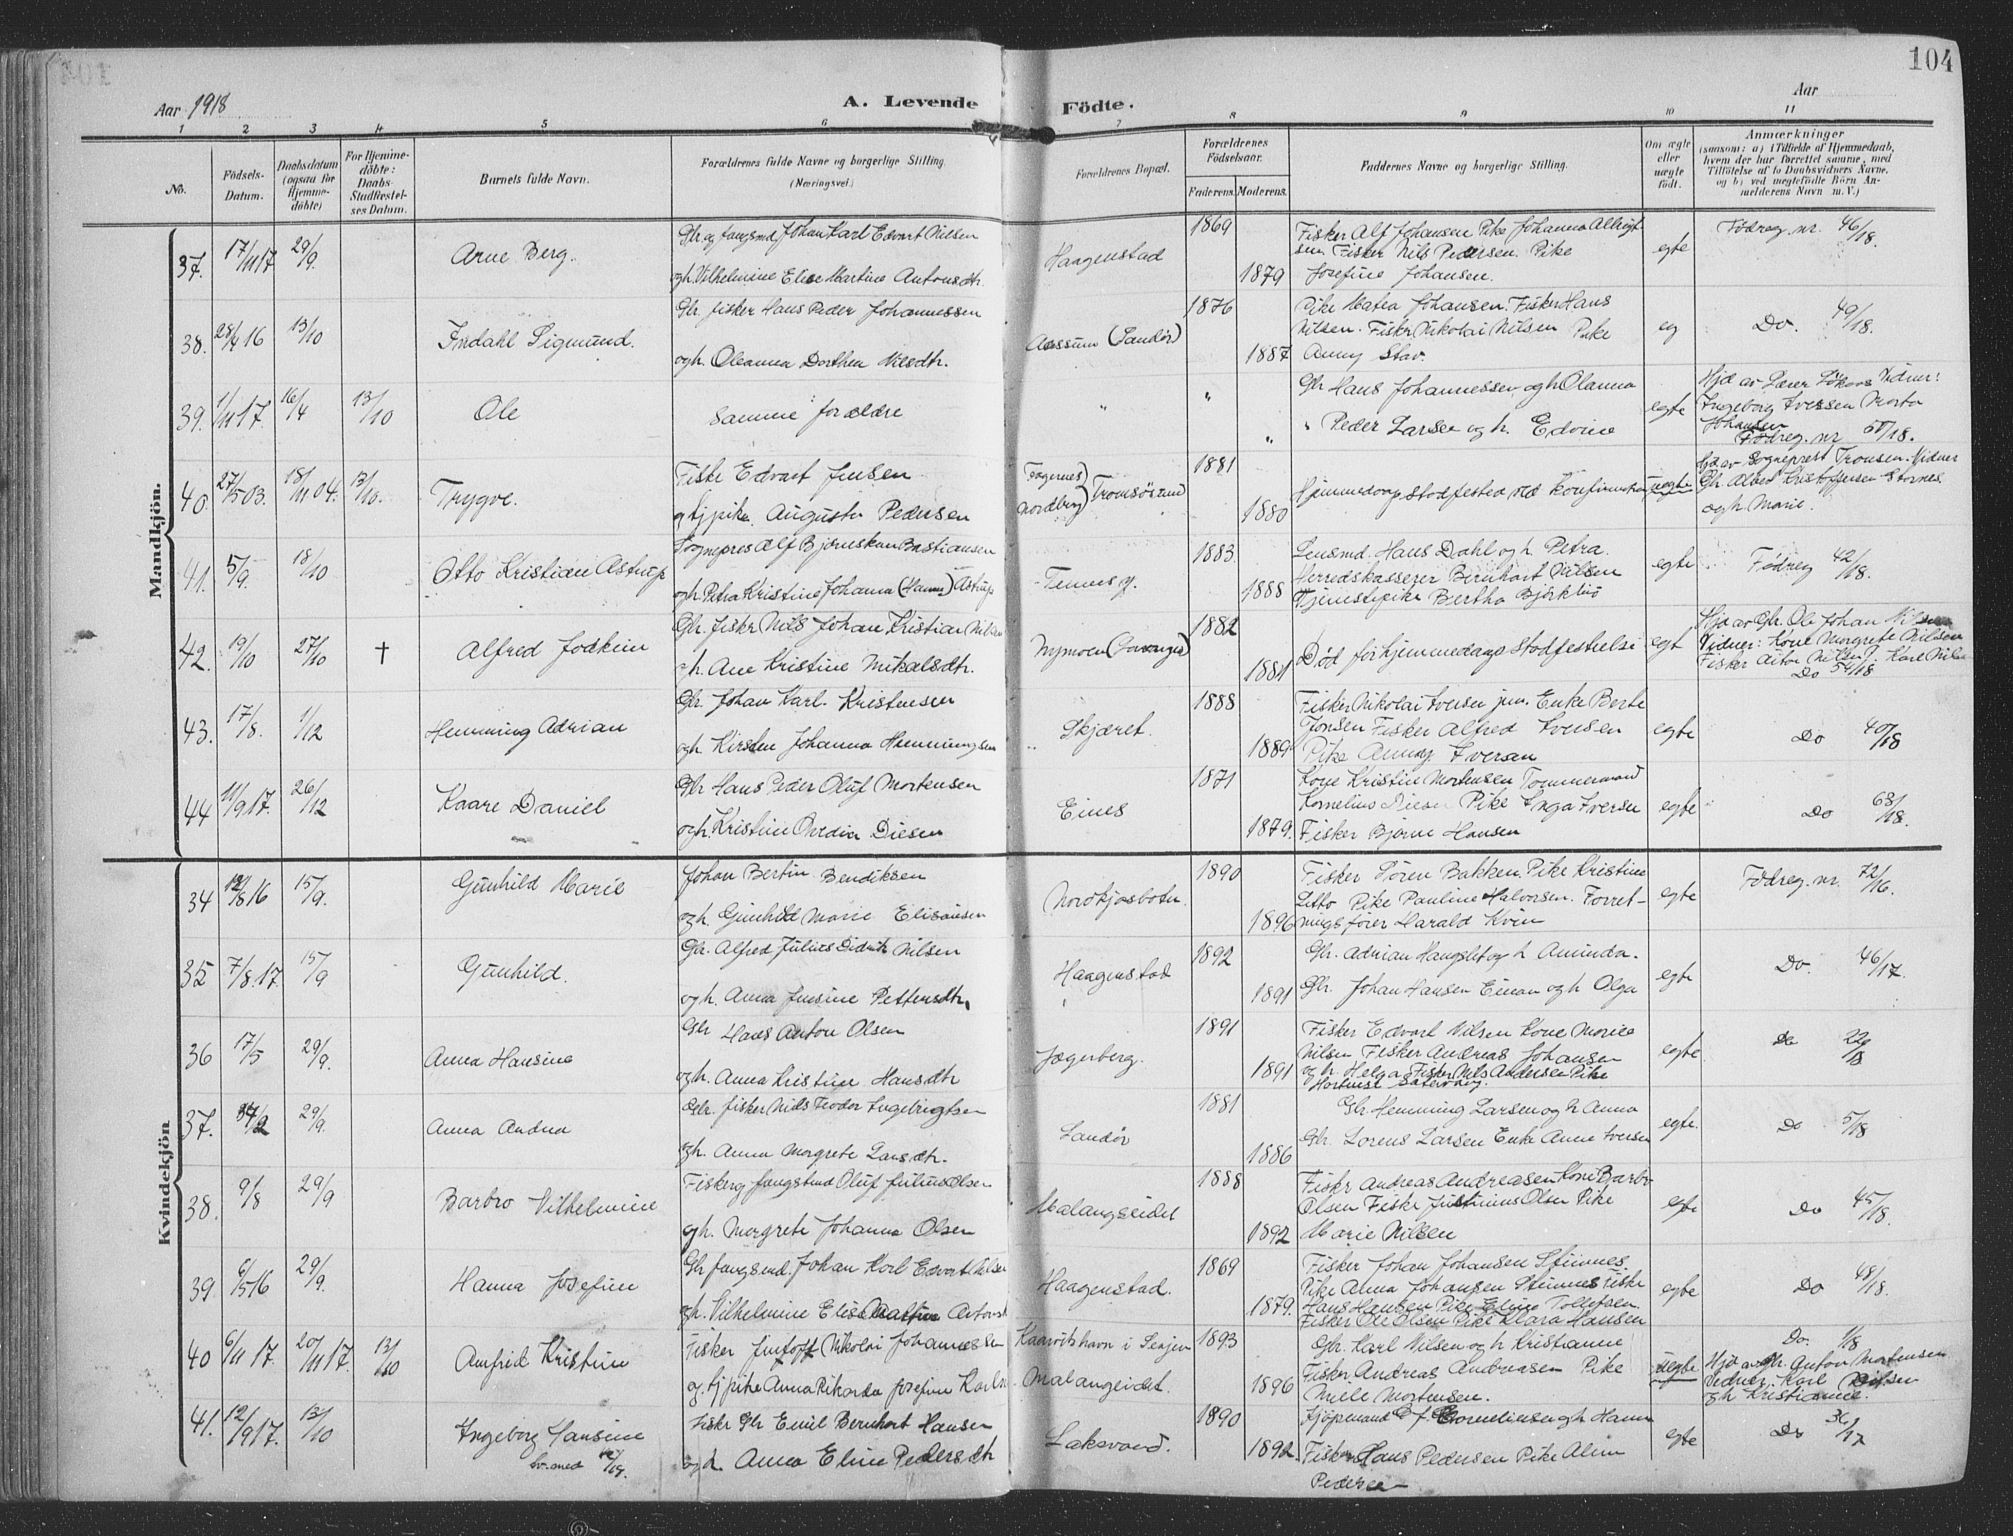 104
Aar 1918
A. Levende Födte.
Aar
1 2 3 4 5 6 7 8 9 10 11
No.
Födsels-
Datum.
Daabsdatum
(ogsaa for
Hjemme-
döbte)
For Hjemme-
döbte:
Daabs-
Stadfæstel-
ses Datum.
Barnets fulde Navn.
Forældrenes fulde Navne og borgerlige Stilling.
(Næringsvei.)
Forældrenes Bopæl.
Forældrenes
Födselsaar.
Faderens. Moderens.
Faddernes Navne og borgerlige Stilling.
Om ægte
eller
uægte
födt.
Anmærkninger
(saasom: a) i Tilfælde af Hjemmedaab,
hvem der har forrettet samme, med
Tilföielse af to Daabsvidners Navne,
og b) ved uægtefödte Börn An-
melderens Navn m. V.)
Mandkjön.
37. 17/11 17 29/9 Arne Berg.
Gbr. og fangsmd Johan Karl Edvart Nilsen
og h. Vilhelmine Elise Martine Antonsdtr.
Haagenstad
1869
1879
Fisker Alf Johansen Pike Johanna Albrigt
sen Fisker Nils Pedersen. Pike
Josefine Johansen.
egte
Födreg. nr. 46/18.
38. 28/4 16 13/10 Indahl Sigmund.
Gbr. fisker Hans Peder Johannessen
og h. Oleanna Dorthea Nilsdtr.
Aassum (Sandör)
1876
1887
Pike Matea Johansen. Fisker Hans
Nilsen. Fiskr Nikolai Nilsen Pike
Anny Stav.
eg
Do. 49/18.
39. 1/11 17. 16/4 13/10 Ole
Samme forældre
" " "
Gbr Hans Johannessen og h Olanna
" Peder Larsen og h. Edvine
egte
Hjd av Lærer Vidner:
Ingeborg Iversen Marta
Johansen
Födreg. nr 51/18.
40. 27/5 03. 18/11 04. 13/10. Trygve.
Fiske Edvart Jensen
og tj pike. Augusta Pedersen
Nordberg) Tromsösund
1881
1880
Hjemmedaap stadfested ved Konfirmation
uegte
Hjd av Sogneprest Tronsen. Vidner
Gbr. Albert Kristoffersen Stornes.
og h Marie.
41. 5/9. 18/10 Otto Kristian Astrup
Sognepres Alf Bjørnskau Bastiansen
og h. Petra Kristine Johanna (Hanna) Astrup
Tennes g.
1883.
1888
Lensmd. Hans Dahl og h. Petra.
Herredskasserer Bernhart Nilsen
Tjenestepike Bertha Björklid
egte
Födreg 42/18.
42. 19/10 27/10 † Alfred Jodkim
Gbr. fiskr Nils Johan Kristian Nilsen
h. Ane Kristine Mikalsdtr.
Nymoen
1882
1881
Död för hjemmedaaps Stadfestelse
egt
Hjd av Gbr. Ole Johan Nilsen
Vidner: Kone Margrete Nilsen
Fisker Karl Nils
Do 54/18.
43. 17/8. 1/12 Hemming Adrian
Gbr. Johan Karl. Kristensen
og h. Kirsten Johanna Hemmingsen
Skjæret.
1888
1889
Fisker Nikolai Iversen jun. Enke Berte
Jonsen Fisker Alfred Iversen
Pike Anny Iversen
egte
Do 40/18
44 11/9 17. 26/12 Kaare Daniel
Gbr Hans Peder Oluf Mortensen
og h. Kristine Ovedia Diesen
Eines
1871
1879.
Kone Kristine Mortensen Tömmermand
Kornelius Diesen Pike Inga Iversen
Fisker Bjarne Hansen
egte
Do 63/18.
Kvindekjön
34 12/8 16 15/9. Gunhild Marie
Johan Bertin Bendiksen
og h. Gunhild Marie Elisausen
Nordkjosboten.
1890
1896
Fisker Sören Bakken. Pike Kristine
Letto Pike Pauline Halvorsen. Forret-
ningsförer Harald Kvin
egte
Födreg. nr. 72/16.
35 7/8.17. 15/9 Gunhild.
Gbr. Alfred Julius Didrik Nilsen
og h. Anna Jensine Pettersdtr.
Haagenstad
1892
1891
Gbr. Adrian Haugslet og h Aminda.
Gbr. Johan Hansen Einan og h Olga
egte
Do. 46/17.
36 17/5 29/9. Anna Hansine
Gbr Hans Anton Olsen
og h. Anna Kristine Hansdtr
Jægerberg.
1891
1891
Fisker Edvart Nilsen Kone Marie
Nilsen Fisker Andreas Johansen
og h. Helga Fisker Nils Andersen Pike
egte.
Do 22/18
37. 29/9. Anna Andrea
Gbr. fisker Nils Teodor Ingebrigtsen
og h. Anna Margrete Larsdtr.
Sandör
1881
1886
Gbr. Hemming Larsen og h Anna
Gbr. Lorens Larsen Enke Anne Iversen
egte.
Do 5/18
38. 9/8 29/9 Barbro Vilhelmine
Fisker og fangstmd Oluf Julius Olsen
og h. Margrete Johanna Olsen
Malangseidet
1888
1892
Fiskr Andreas Andreasen Kone Barbro
Olsen Fiske Justinius Olsen Pike
Marie Nilsen
egte
Do 45/18.
39. 6/5 16 29/9. Hanna Josefine
Gbr fangsmd. Johan Karl Edvart Nilsen
og h. Vilhelmine Elise Martine Antonsdt
Haagenstad.
1869
1879.
Fisker Johan Johansen Steinnes.
Pike Anna Johansen Steinnes Fiske
Hans Hansen Pike Eline Tollefsen
Fisker Ole Olsen Pike Klara Hansen
egte
Do 48/18.
40 6/11 17. 20/11 17. 13/10 Amfrid Kristine
Fisker Jentoft Nikolai Johannessen
og tj pike Anna Rikarda Josefine Karls
Kaarvikshavn i Senjen
Malangeidet.
1893
1896
Gbr. Karl Nilsen og h Kristianne
Fisker Andreas Andreasen Pike
Mille Mortensen.
uegte
Do. 1/18
Hjd av Gbr. Anton Mortensen
Vidner: Karl Nilsen
og h Kristianne.
41. 12/9 17. 13/10 Ingeborg Hansine
Fiskr Gbr Emil Bernhart Hansen
og h. Anna Eline Pedersdtr
Laksvand.
1890
1892.
Kjöpmand Cornelinsen og h Hanna
Fisker Hans Pedersen Pike Alma
Pedersen
egte
Do 36/17